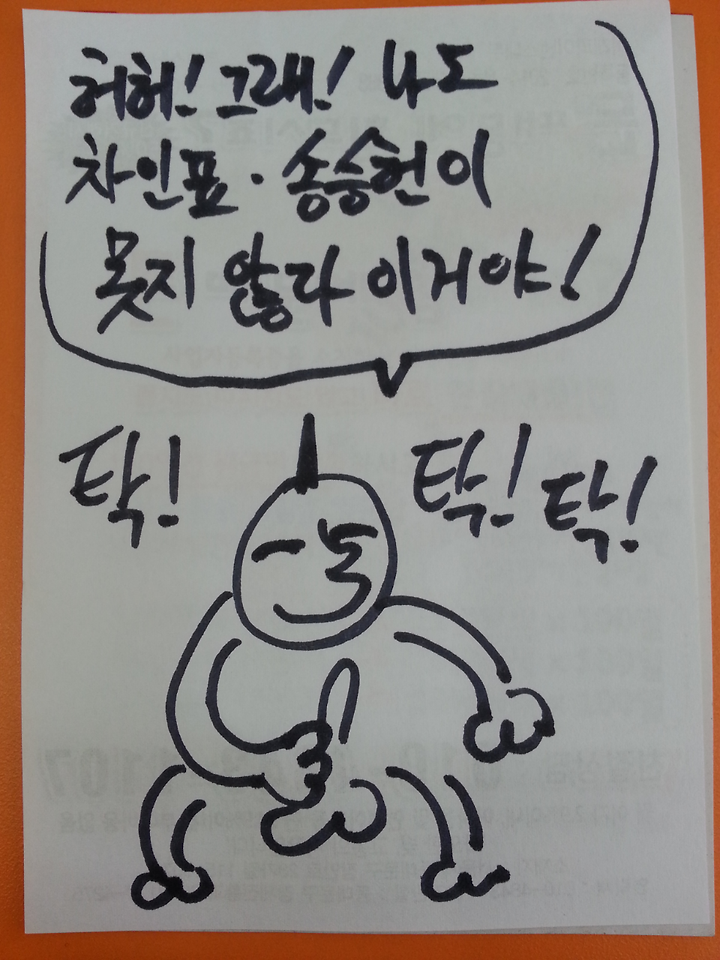 허허! 그래! 나도
차인표·송승헌이
못지 않다 이거야!
탁! 탁! 탁!